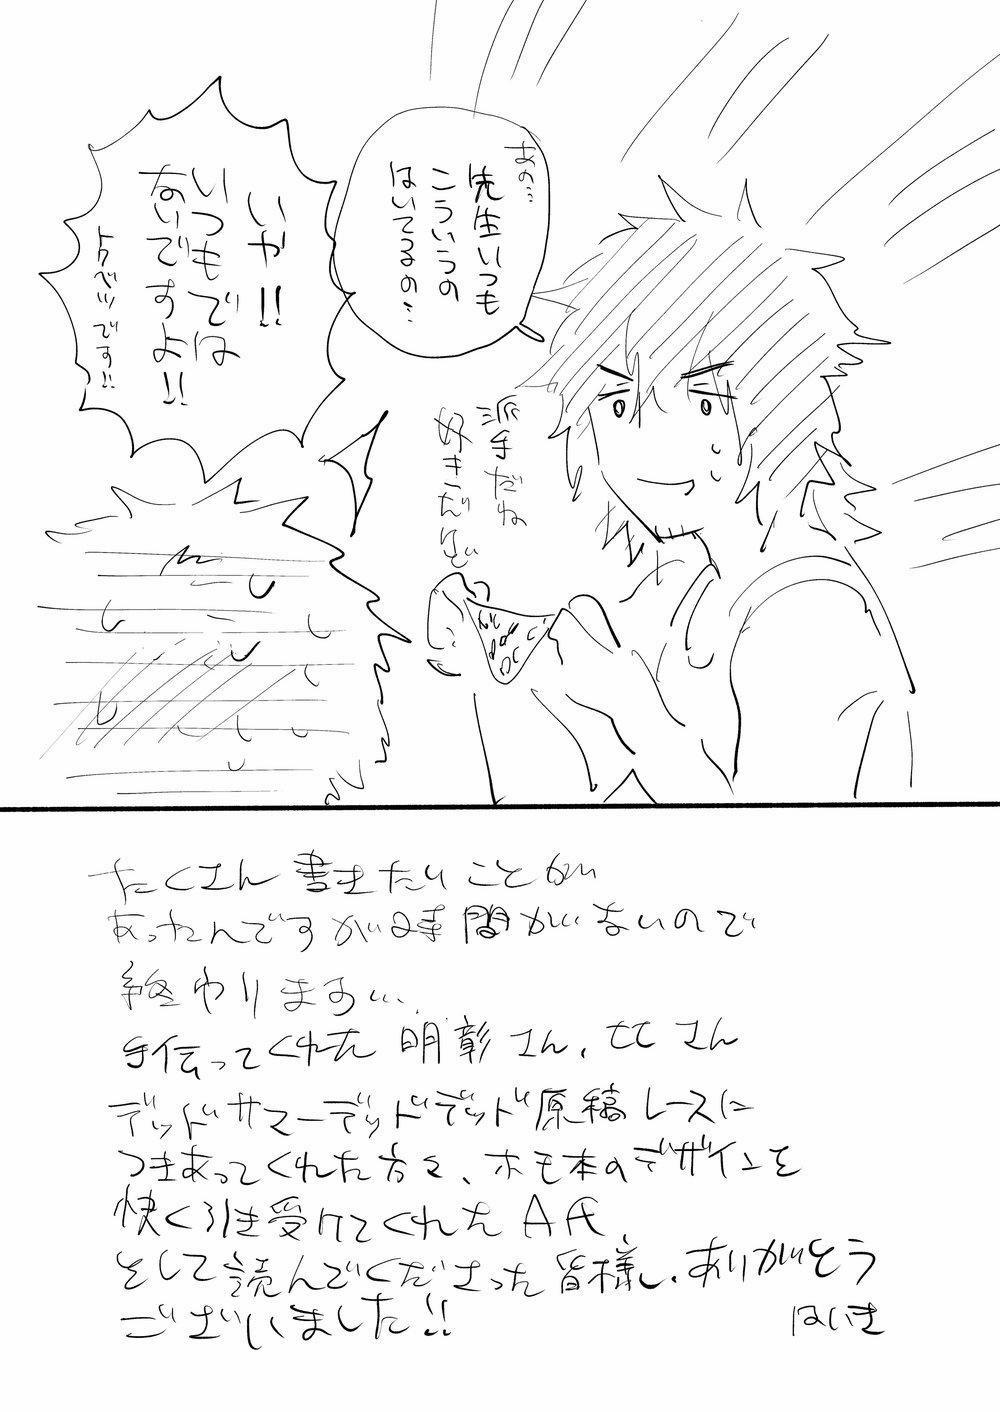 あの…
先生いつも
こういうの
はいてるの…
いや!!
いつもでは
ないですよ!!
トクベツです!!
派手だね
好きだけど
たくさん書きたいことが
あったんですが時間がないので
終わります…
手伝ってくれた明彰さん、ヒヒさん
デッドサマーデッドデッド原稿レースに
つきあってくれた方々、ホモ本のデザインを
快く引き受けてくれたAA、
そして読んでくださった皆様、ありがとう
ございました!!
はいき